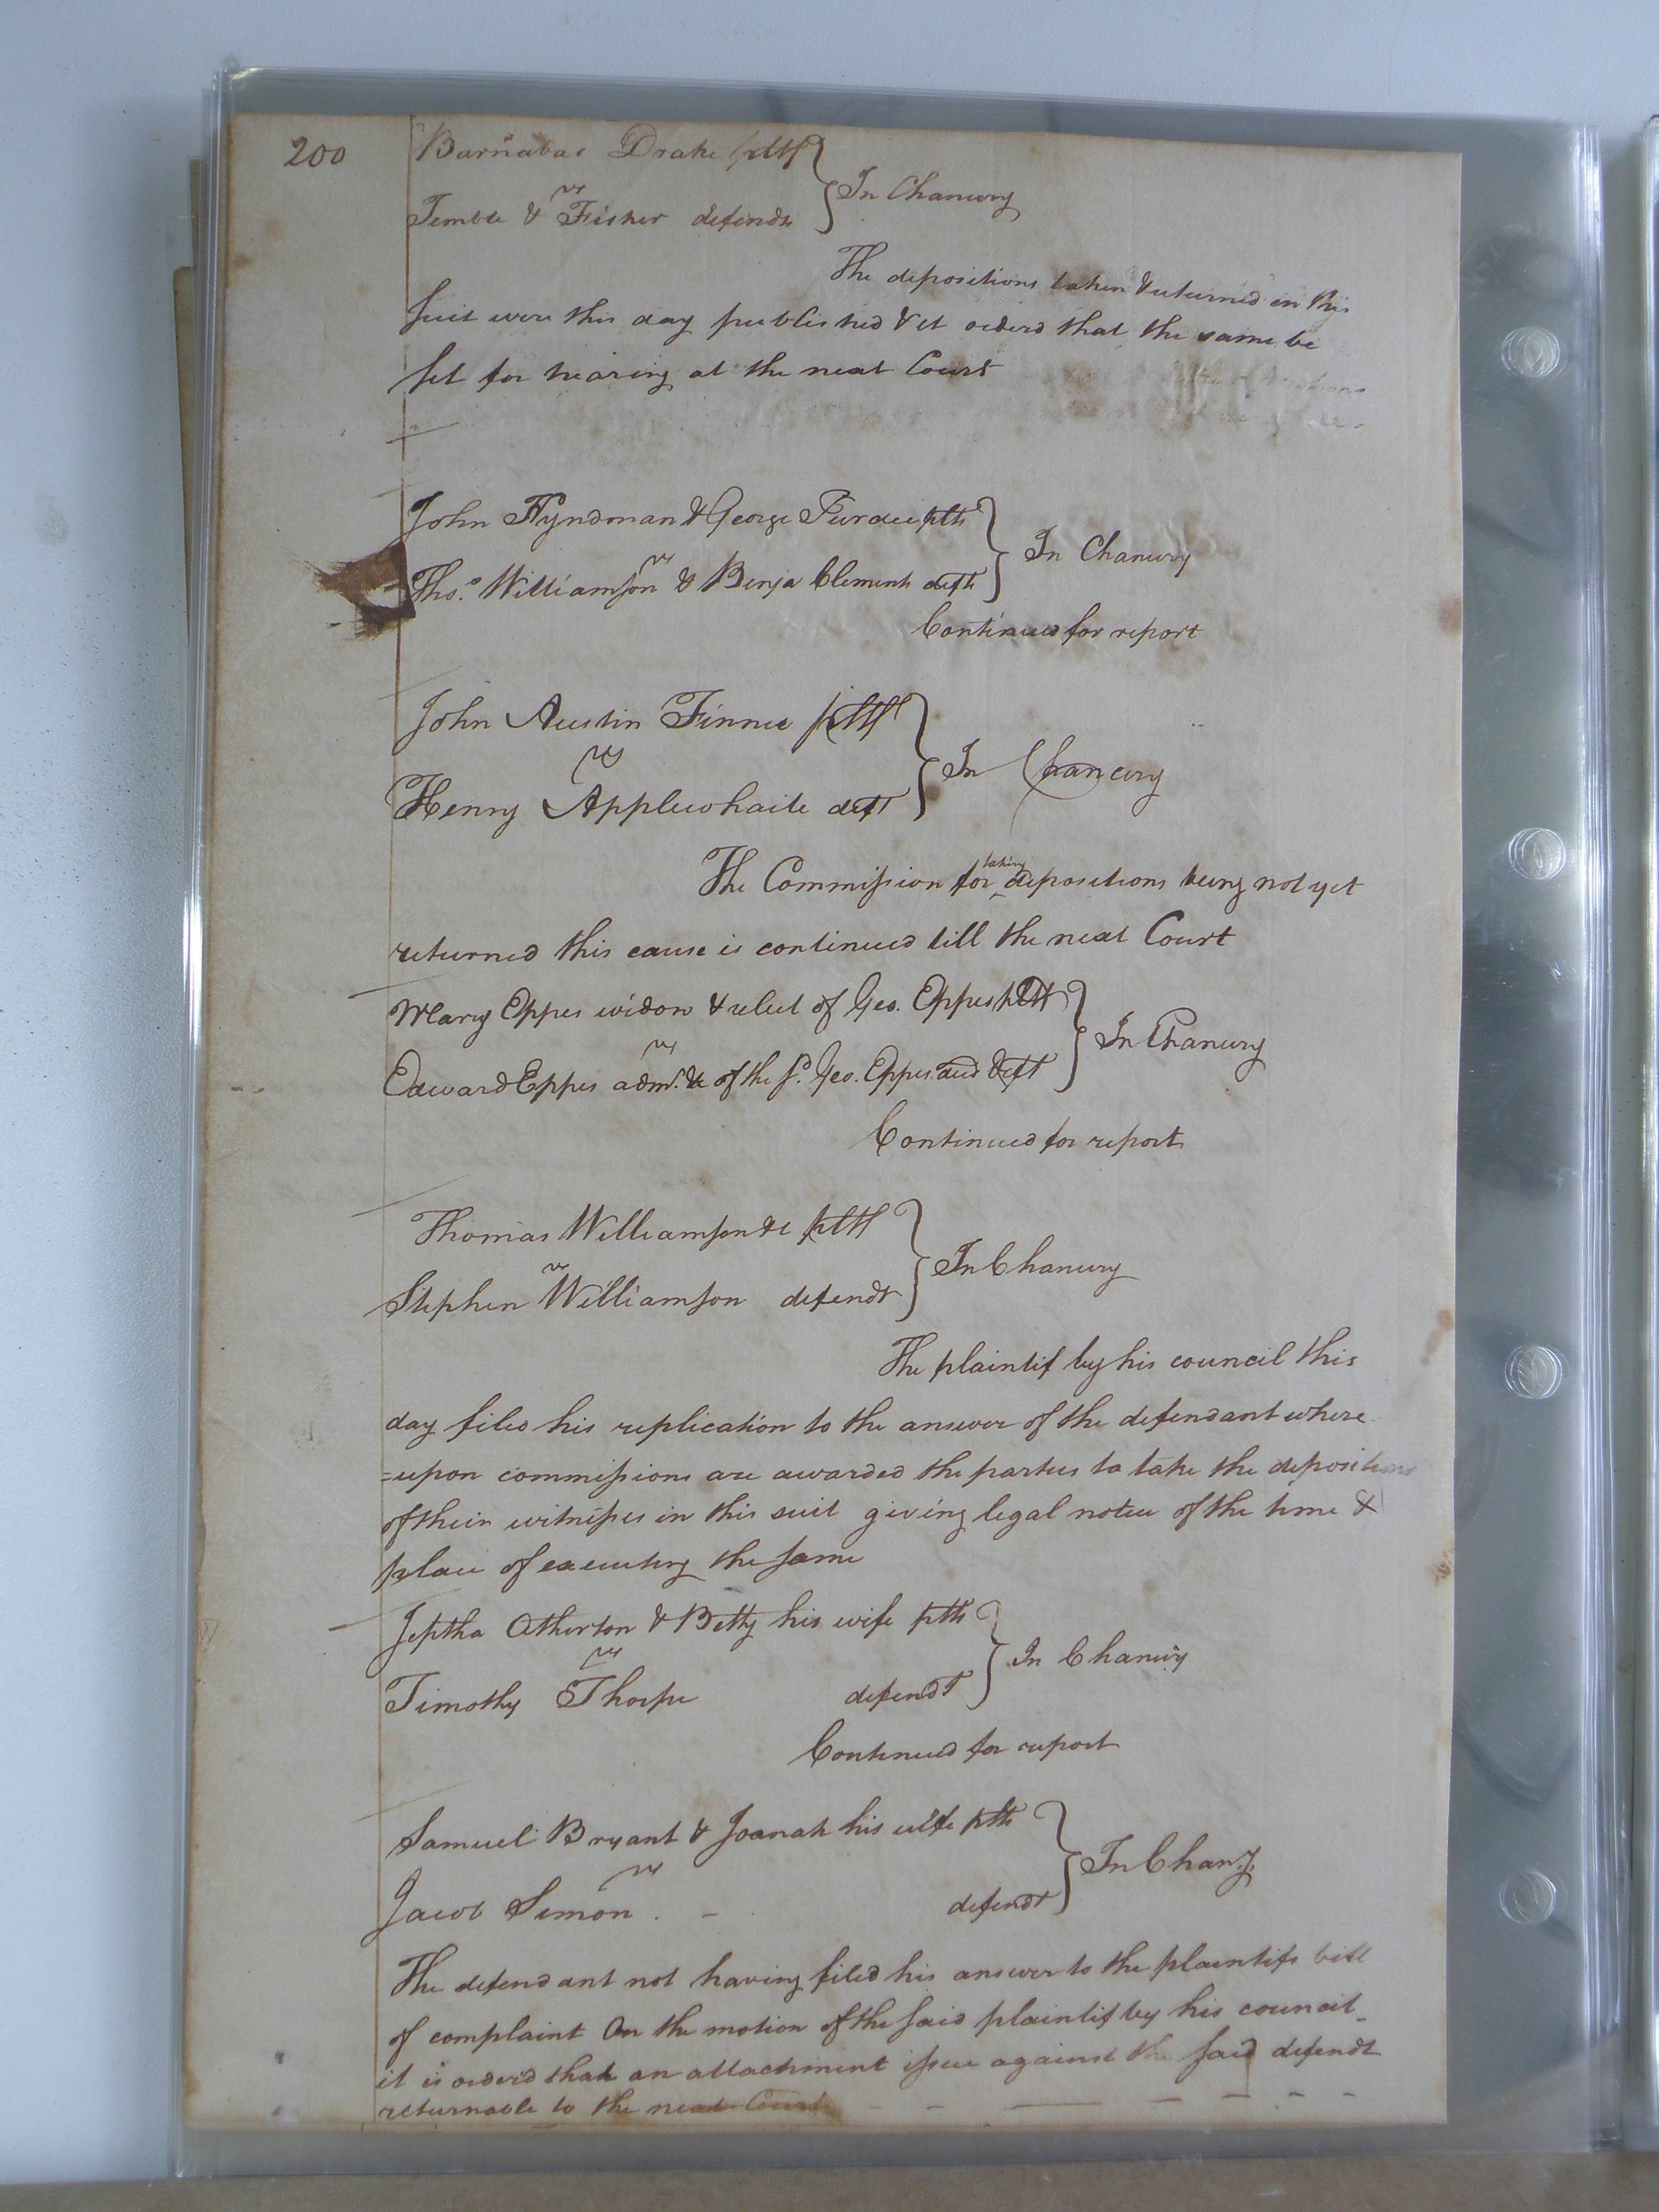 200
Barnabas Drake pltff
vs
Temble & Fisher defendts
In Chancery
The depositions taken & returned in this
suit were this day published & it orderd that the same be
set for hearing at the next Court
John Hyndman & George Purdie plts
vs
Thos. Williamson & Benja Clements defts
In Chancery
Continued for report
John Austin Finnie pltff
vs
Henry Applewhaite deft
In Chancery
taking
The Commission for ‸ depositions being not yet
returned this cause is continued till the next Court
Mary Eppes widow & relict of Geo. Eppes pltff
vs
Edward Eppes admr. &c of the sd. Geo. Eppes decd deft
In Chancery
Continued for report
Thomas Williamson &c pltff
vs
Stephen Williamson defendt
In Chancery
The plaintif by his council this
day filed his replication to the answer of the defendant where
=upon commissions are awarded the parties to take the depositions
of their witnesses in this suit giving legal notice of the time &
place of executing the same
Jeptha Atherton & Betty his wife plts
vs
Timothy Thorpe defendt
In Chancery
Continued for report
Samuel Bryant & Joanah his wife plts
vs
Jacob Simon . - defendt
In Chany.
The defendant not having filed his answer to the plaintifs bill
of complaint On the motion of the said plaintif by his council
it is orderd that an attachment issue against the said defendt
returnable to the next Court